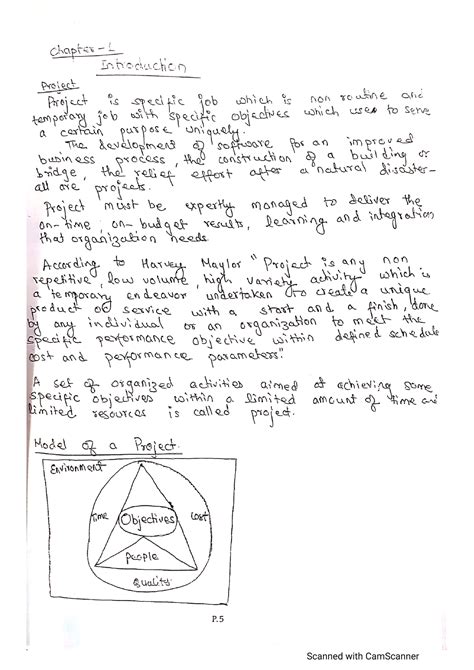 Chapter-1
Introduction
Project
Project is specific job which is non routine and
temporary job with specific objectives which uses to serve
a certain purpose uniquely.
The development of software for an improved
business process, the construction of a building or
bridge, the relief effort after a natural disaster-
all are projects.
Project must be expertly managed to deliver the
on-time, on-budget results, learning and integration
that organization needs
According to Harvey Maylor "Project is any non
repetitive, low volume, high variety activity which is
a temporary endeavor undertaken to create a unique
product or service with a start and a finish, done
by any individual or an organization to meet the
specific performance objective within defined schedule
cost and performance parameters."
A set of organized activities aimed at achieving some
specific objectives within a limited amount of time and
limited resources is called project.
Model of a Project.
Environment
time Objectives cost
people
quality
P.5
Scanned with CamScanner